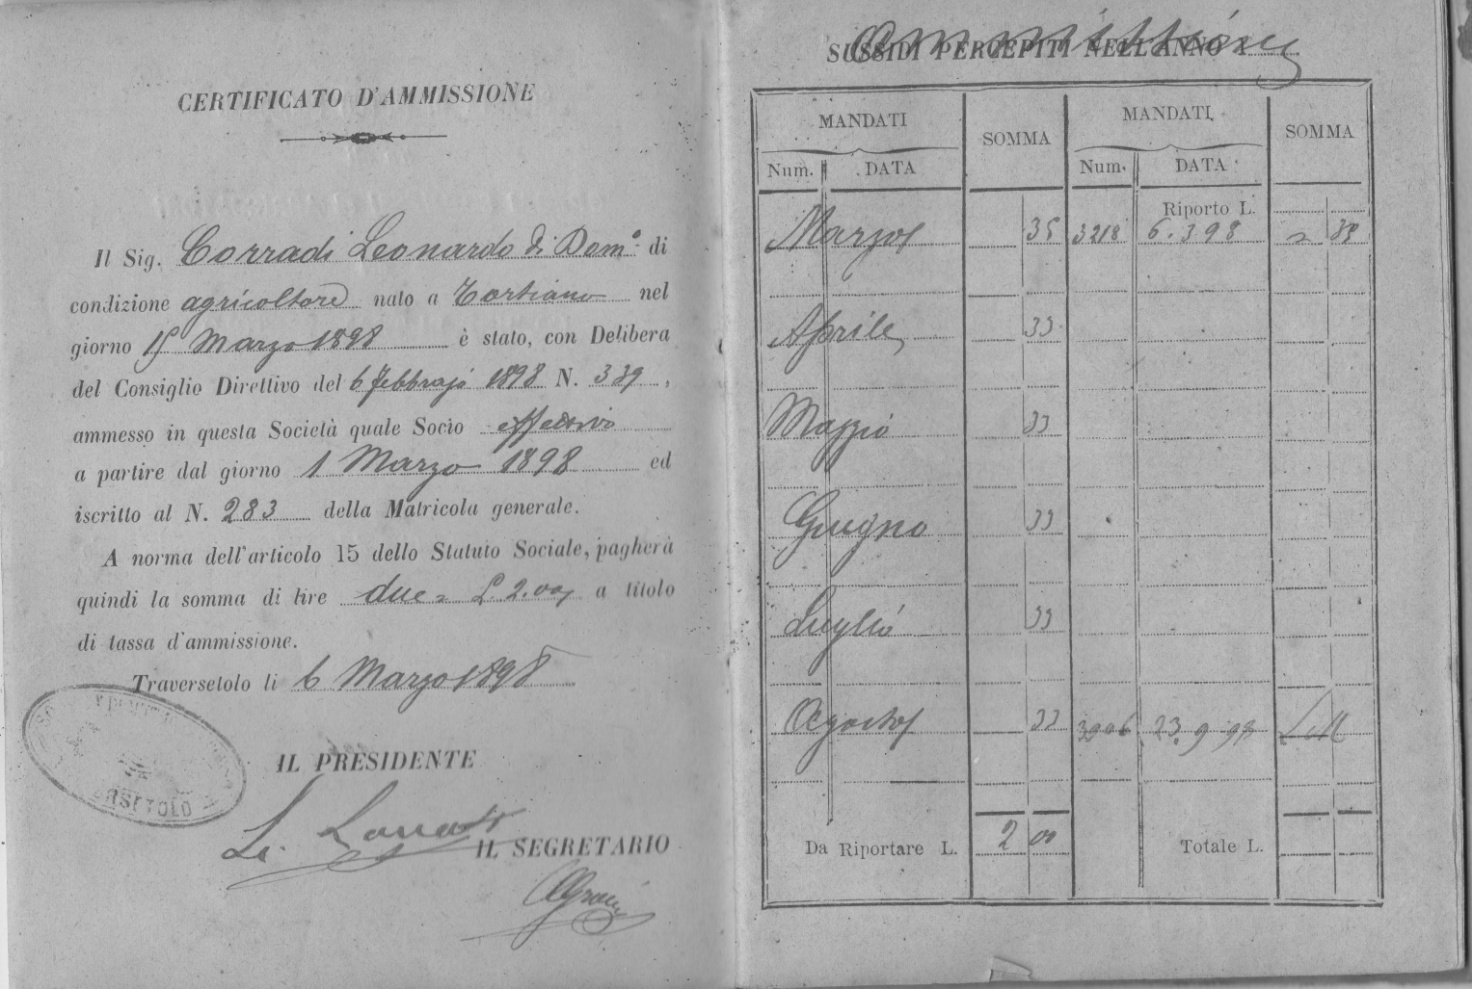 CERTIFICATO D'AMMISSIONE
Il Sig. Corradi Leonardo di Dom.º di
condizione agricoltore nato a Tortiano nel
giorno Marzo 1898 è stato, con Delibera
del Consiglio Direttivo del 6 febbrajo 1898 N. 339,
ammesso in questa Società quale Socio effettivo
a partire dal giorno 1 Marzo 1898 ed
iscritto al N. 283 della Matricola generale.
A norma dell'articolo 15 dello Statuto Sociale, pagherà
quindi la somma di lire due = L. 2.00 a titolo
di tassa d'ammissione.
Traversetolo li 6 Marzo 1898
IL PRESIDENTE
IL SEGRETARIO
SUSSIDI PERCEPITI NELL'ANNO 1
MANDATI SOMMA MANDATI SOMMA
Num. DATA Num. DATA
Riporto L.
Marzo 35 3218 6.3 98
Aprile 33
Maggio 33
Giugno 33
Luglio 33
Agosto 33 23.9 98
Da Riportare L. 2 00 Totale L.